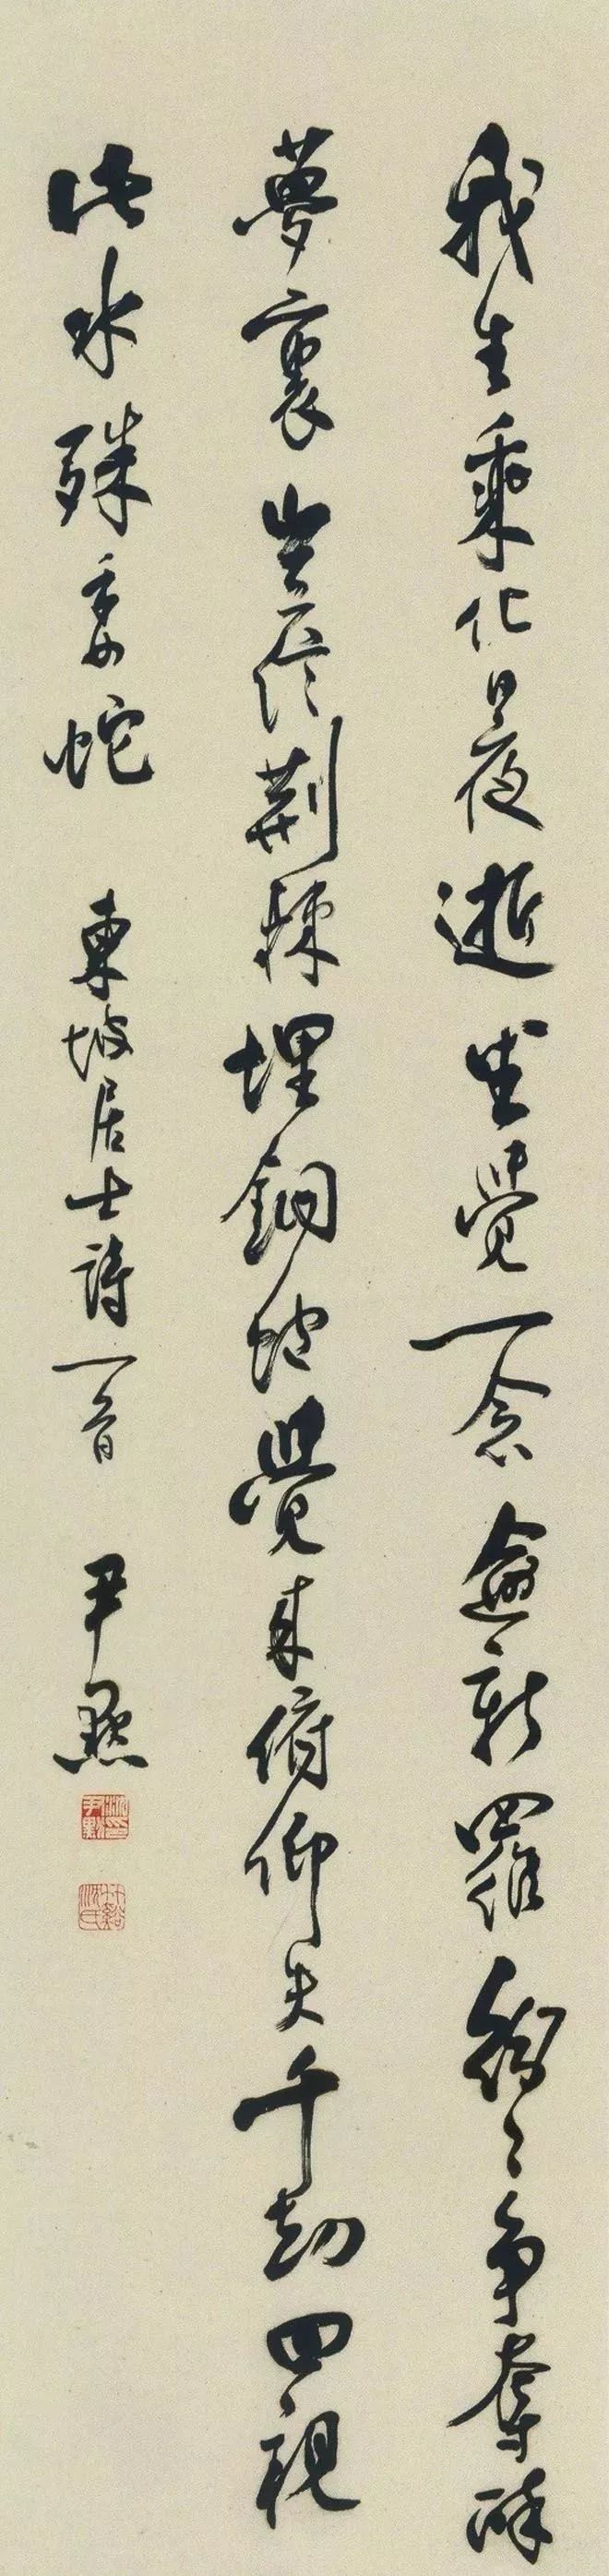 我生乘化日夜逝坐覺一念逾新羅紛〻爭奪醉
夢裏豈信荊棘埋銅駝覺來俯仰失千劫回視
此水殊委蛇 東坡居士詩一首 尹默
竹谿沈氏